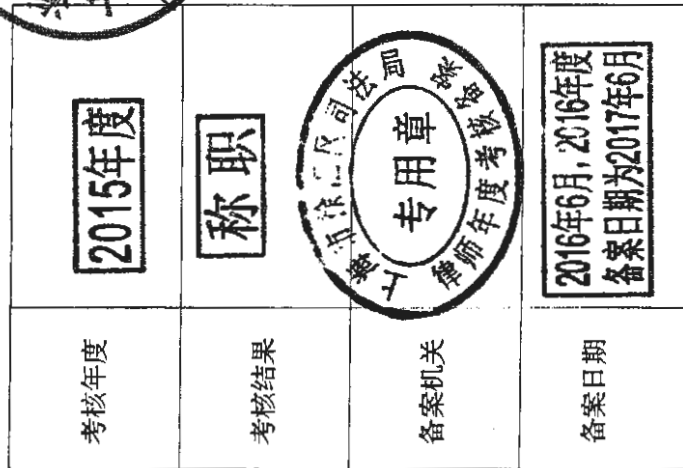 考核年度
2015年度
考核结果
称职
备案机关
上海市徐汇区司法局
专用章
律师年度考核备案
备案日期
2016年6月,2016年度
备案日期为2017年6月